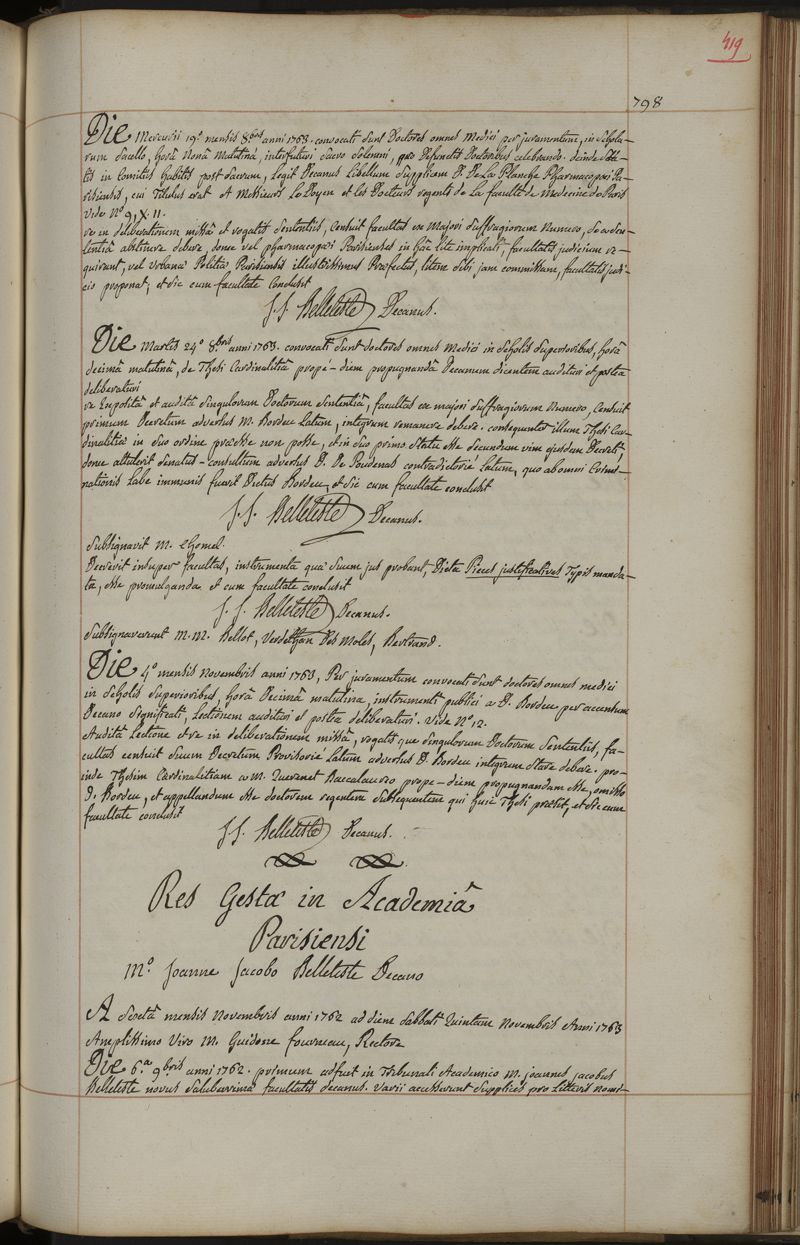 419
798
Die Mercurii 19° mensis 8bris anni 1763. convocati sunt Doctores omnes Medici per juramentum, in Schola-
rum sacello, horâ Nonâ Matutinâ, interfuturi Sacro Solemni, pro Defunctis Doctoribus celebrando. deinde Sta-
tis in Comitiis habitis post Sacrum, Legit Decanus Libellum Supplicem D. De La Planche Pharmacopœi Pa-
risiensis, cui Titulus erat A Messieurs Le Doyen et les Docteurs regents de La faculté de Medecine de Paris
Vide N° 9, X. 11.
re in deliberationem missâ et rogatis Sententiis, Censuit facultas ex Majori Suffragiorum Numero, se a Sen-
tentiâ abstinere debere, donec vel pharmacopœi Parisienses in hâc lite impliciti, facultatis judicium re-
quirant, vel Urbanæ Politiæ Parisiensis illustrissimus Præfectus, litem sibi jam commissam, facultatis judi-
cio proponat, et sic cum facultate Conclusit
J. J. Belleteste Decanus.
Die Martis 24° 8bris anni 1763. convocati sunt doctores omnes Medici in Scholis Superioribus, horâ
decimâ matutinâ, de Thesi Cardinalitiâ propé-diem propugnandâ Decanum dicentem audituri et postea
deliberaturi
re Expositâ et auditâ Singulorum Doctorum Sententiâ, facultas ex majori Suffragiorum Numero, Censuit
primum Decretum adversus M. Bordeu Latum, integrum remanere debere. consequenter illum Thesi Car-
dinalitiæ in suo ordine præesse non posse, et in suo primo Statu esse secundum vim ejusdem Decreti,
donec attulerit Senatus-consultum adversus D. De Poudenas contradictorié Latum, quo ab omni Crimi-
nationis Labe immunis fuerit Dictus Bordeu, et sic cum facultate conclusit
J. J. Belleteste Decanus.
Subsignavit M. Lhomel.
Decrevit insuper facultas, instrumenta quæ Suum jus probant, Dicta Pieces justificatives Typis manda-
ta, esse promulganda et cum facultate conclusit
J. J. Belleteste Decanus.
Subsignaverunt M. M. Bellot, Verdelhan Des Moles, Bertrand.
Die 4° mensis Novembris anni 1763, Per juramentum convocati sunt doctores omnes medici
in Scholis Superioribus, horâ Decimâ matutina, instrumenti publici a D. Bordeu per accensum
Decano Significati, Lectionem audituri et postea deliberaturi. Vide N° 12.
Auditâ Lectione et re in deliberationem missâ, rogatis que Singulorum Doctorum Sententiis, fa-
cultas censuit Suum Decretum Provisorié Latum adversus D. Bordeu integrum Stare debere. pro-
inde Thesim Cardinalitiam a M. Baccalaureo prope-diem propugnandam esse, omisso
D. Bordeu, et appellandum esse doctorem regentem Subsequentem qui huic Thesi præsit, et sic cum
facultate conclusit
J. J. Belleteste Decanus.
Res Gestæ in Academiâ
Parisiensi
M° Joanne Jacobo Belleteste Decano
A Sextâ mensis Novembris anni 1762 ad diem Sabbati Quintam Novembris Anni 1763
Amplissimo Viro M. Guidone fourneau, Rectore
Die 6a 9bris anni 1762. primum adfuit in Tribunali Academico M. joannes jacobus
Belleteste novus Saluberrimæ facultatis decanus. Varii accesserunt Supplices pro Litteris nomi-